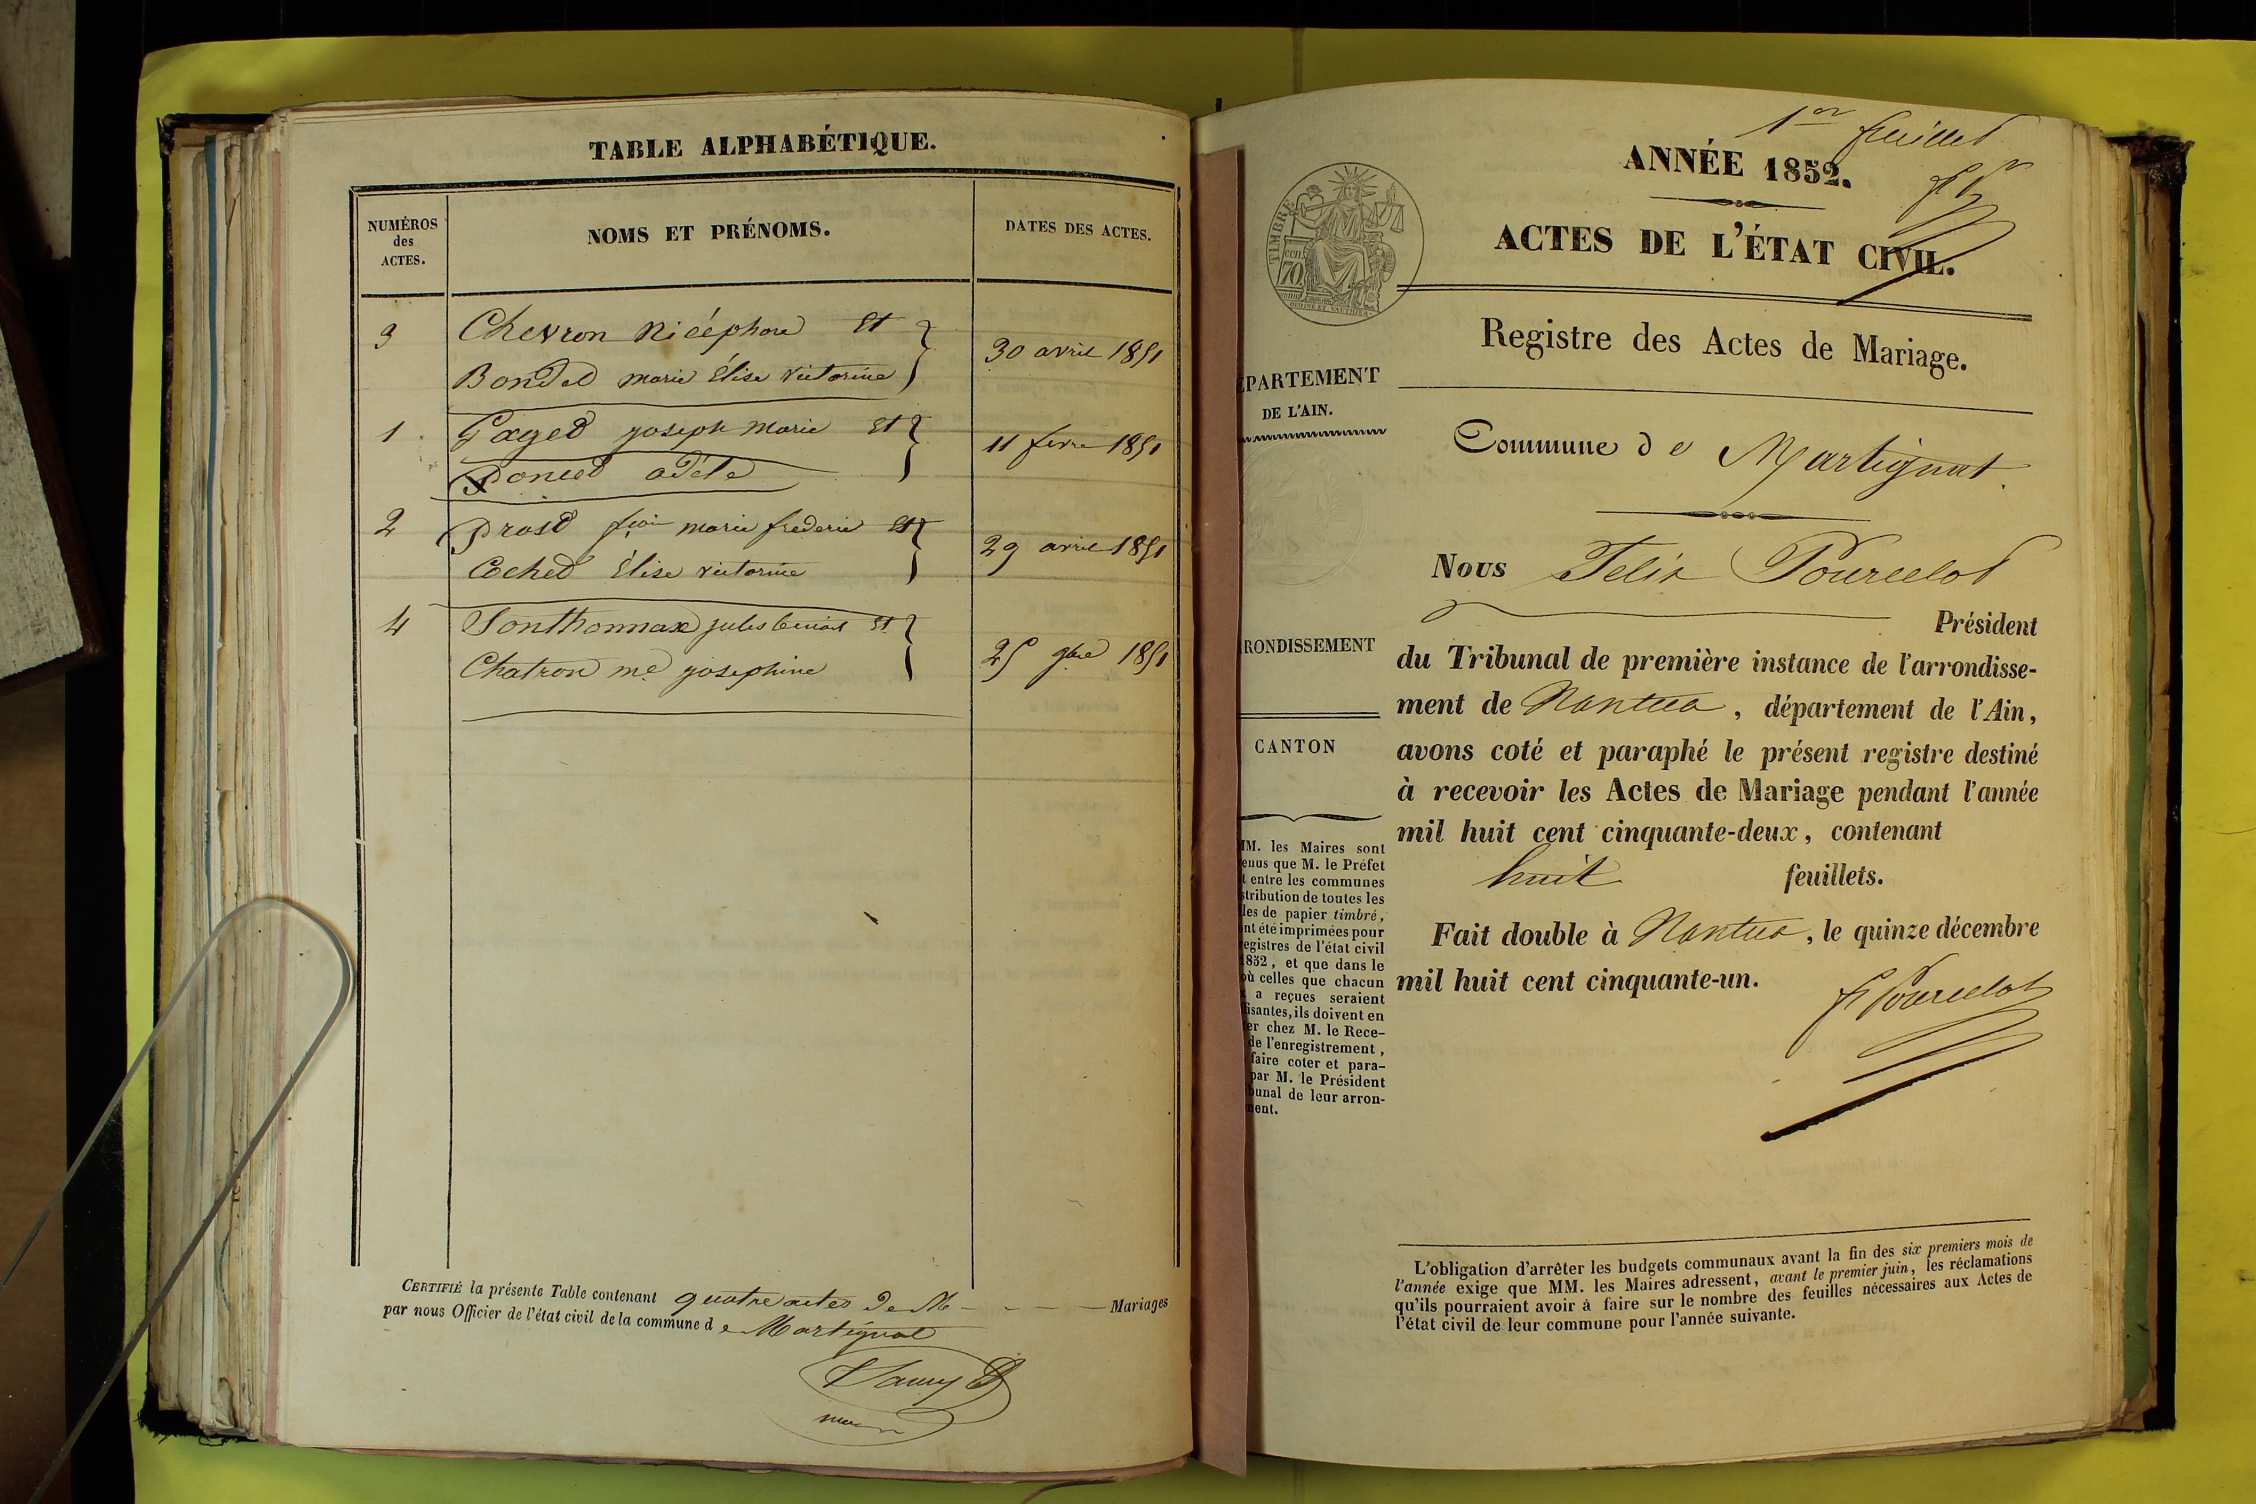 TABLE ALPHABÉTIQUE.
NUMÉROS
des
ACTES.
NOMS ET PRÉNOMS.
DATES DES ACTES.
3
Chevron Nicéphore et
Bondet marie Élise victorine
30 avril 1851
1
joseph marie et
Poncet adèle
11 fevrr 1851
2
Prost fçois marie frederic et
Cochet Élise victorine
29 avril 1851
4
Sonthonnax jules et
Chatron me josephine
25 9bre 1851
CERTIFIÉ la présente Table contenant quatre actes de M Mariages
par nous Officier de l'état civil de la commune d e Martignat
1er feuillet
ANNÉE 1852.
ACTES DE L'ÉTAT CIVIL.
TIMBRE
70
Registre des Actes de Mariage.
ÉPARTEMENT
DE L'AIN.
Commune d e Martignat.
Nous Felix Pourcelot
Président
RONDISSEMENT
du Tribunal de première instance de l'arrondisse-
ment de Nantua, département de l'Ain,
CANTON
avons coté et paraphé le présent registre destiné
à recevoir les Actes de Mariage pendant l'année
mil huit cent cinquante-deux, contenant
huit feuillets.
Fait double à Nantua, le quinze décembre
mil huit cent cinquante-un.
F Pourcelot
MM. les Maires sont
enus que M. le Préfet
t entre les communes
stribution de toutes les
les de papier timbré,
nt été imprimées pour
egistres de l'état civil
1852, et que dans le
où celles que chacun
x a reçues seraient
fisantes, ils doivent en
er chez M. le Rece-
de l'enregistrement,
faire coter et para-
par M. le Président
bunal de leur arron-
ment.
L'obligation d'arrêter les budgets communaux avant la fin des six premiers mois de
l'année exige que MM. les Maires adressent, avant le premier juin, les réclamations
qu'ils pourraient avoir à faire sur le nombre des feuilles nécessaires aux Actes de
l'état civil de leur commune pour l'année suivante.